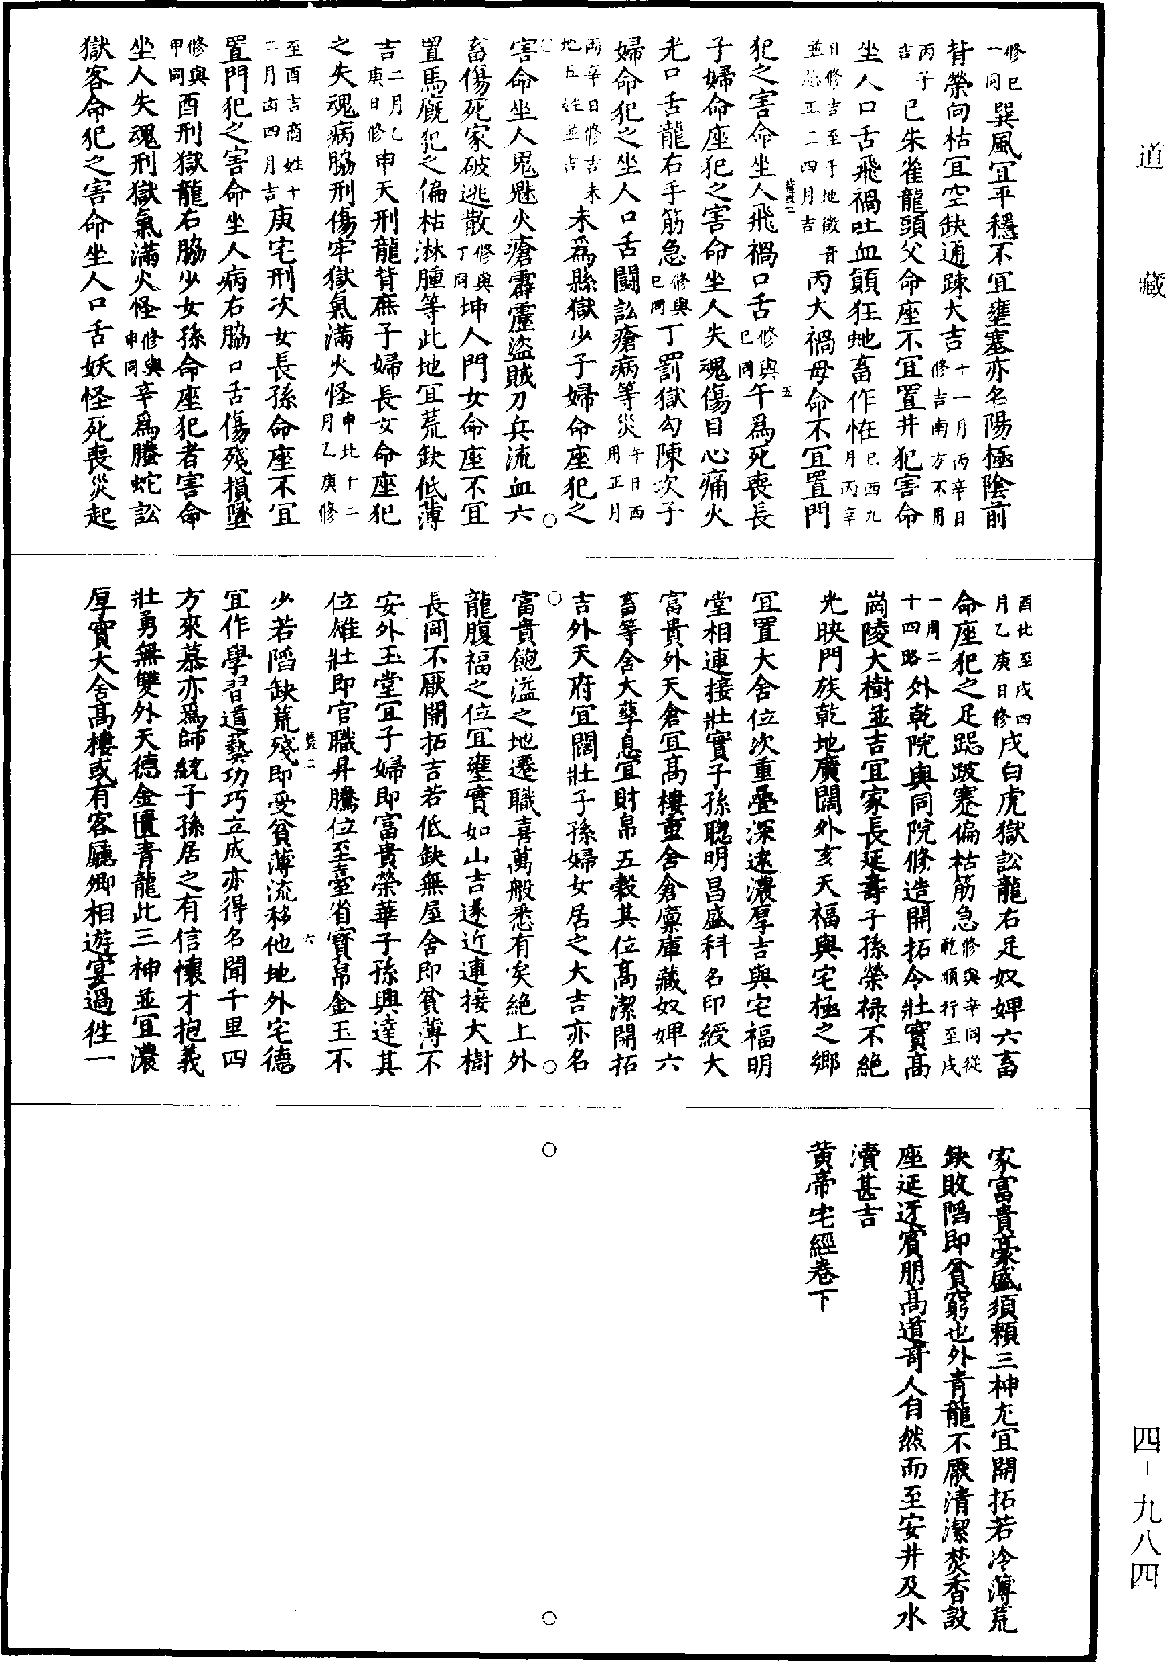 道藏
修巳一同巽風宜平穩不宜壅塞亦名陽極陰前
背榮向枯宜空缺通疎大吉十一月丙辛日修吉南方不用
丙子吉巳朱雀龍頭父命座不宜置井犯害命
坐人口舌飛禍吐血顛狂虵畜作怪巳酉九月丙辛
日修吉至于地徵音並忌正二四月吉丙大禍母命不宜置門
犯之害命坐人飛禍口舌修與巳同午為死喪長
子婦命座犯之害命坐人失魂傷目心痛火
光口舌龍右手筋急修與巳同丁罰獄勾陳次子
婦命犯之坐人口舌鬪訟瘡病等災午日西用正月
丙辛日修吉未地五姓並吉未為縣獄少子婦命座犯之
害命坐人鬼魅火瘡霹靂盜賊刀兵流血六
畜傷死家破逃散修與丁同坤人門女命座不宜
置馬廄犯之偏枯淋腫等此地宜荒缺低薄
吉二月乙庚日修申天刑龍背庶子婦長女命座犯
之失魂病脇刑傷牢獄氣滿火怪申北十二月乙庚修
至酉吉商姓十二月西四月吉庚宅刑次女長孫命座不宜
置門犯之害命坐人病右脇口舌傷殘損墜
修與甲同酉刑獄龍右脇少女孫命座犯者害命
坐人失魂刑獄氣滿火怪修與申同辛為螣蛇訟
獄客命犯之害命坐人口舌妖怪死喪災起
酉北至戌四月乙庚日修戌白虎獄訟龍右足奴婢六畜
命座犯之足跽跛蹇偏枯筋急修與辛同從乾順行至戌
一周二十四路外乾院與同院修造開拓令壯實高
崗陵大樹並吉宜家長延壽子孫榮祿不絕
光映門族乾地廣闊外亥天福與宅極之鄉
宜置大舍位次重疊深遠濃厚吉與宅福明
堂相連接壯實子孫聰明昌盛科名印綬大
富貴外天倉宜高樓重舍倉廩庫藏奴婢六
畜等舍大孳息宜財帛五穀其位高潔開拓
吉外天府宜闊壯子孫婦女居之大吉亦名
富貴飽溢之地遷職喜萬般悉有矣絕上外
龍腹福之位宜壅實如山吉遠近連接大樹
長岡不厭開拓吉若低缺無屋舍即貧薄不
安外玉堂宜子婦即富貴榮華子孫興達其
位雄壯即官職昇騰位至臺省寶帛金玉不
少若陷缺荒殘即受貧薄流移他地外宅德
宜作學習道藝功巧立成亦得名聞千里四
方來慕亦為師統子孫居之有信懷才抱義
壯勇無雙外天德金匱青龍此三神並宜濃
厚實大舍高樓或有客廳卿相遊宴過往一
家富貴豪盛須賴三神尤宜開拓若冷薄荒
缺敗陷即貧窮也外青龍不厭清潔焚香設
座延迓賓朋高道奇人自然而至安井及水
瀆甚吉
黃帝宅經卷下
四－九八四